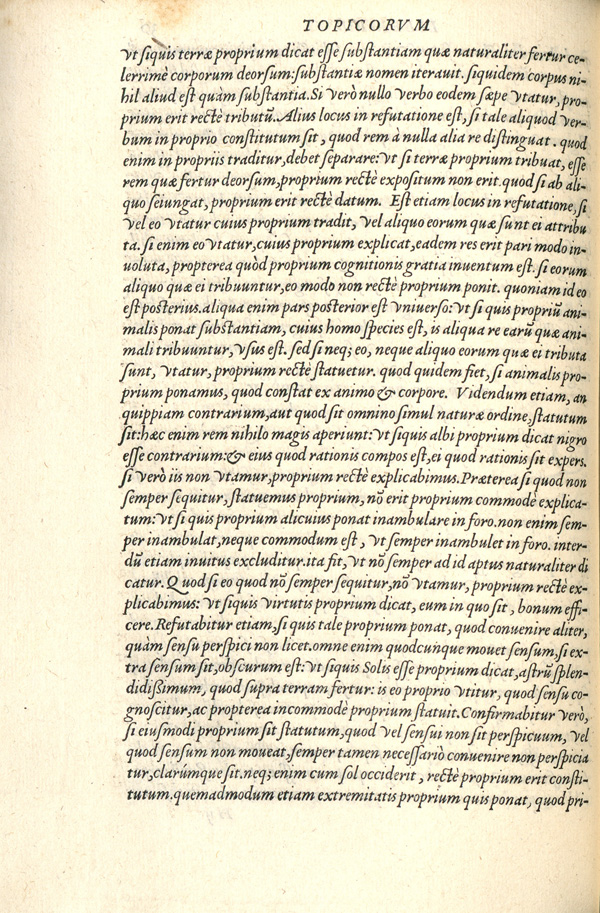 TOPICORVM
vt siquis terræ proprium dicat esse substantiam quæ naturaliter fertur ce-
lerrimè corporum deorsum: substantiæ nomen iterauit. siquidem corpus ni-
hil aliud est quàm substantia. Si verò nullo verbo eodem sæpe vtatur, pro-
prium erit rectè tributũ. Alius locus in refutatione est, si tale aliquod ver-
bum in proprio constitutum sit, quod rem à nulla alia re distinguat. quod
enim in propriis traditur, debet separare: vt si terræ proprium tribuat, esse
rem quæ fertur deorsum, proprium rectè expositum non erit. quod si ab ali-
quo seiungat, proprium erit rectè datum. Est etiam locus in refutatione, si
vel eo vtatur cuius proprium tradit, vel aliquo eorum quæ sunt ei attribu
ta. si enim eo vtatur, cuius proprium explicat, eadem res erit pari modo in-
uoluta, propterea quòd proprium cognitionis gratia inuentum est. si eorum
aliquo quæ ei tribuuntur, eo modo non rectè proprium ponit. quoniam id eo
est posterius. aliqua enim pars posterior est vniuerso: vt si quis propriũ ani-
malis ponat substantiam, cuius homo species est, is aliqua re earũ quæ ani-
mali tribuuntur, vsus est. sed si neq; eo, neque aliquo eorum quæ ei tributa
sunt, vtatur, proprium rectè statuetur. quod quidem fiet, si animalis pro-
prium ponamus, quod constat ex animo & corpore. Videndum etiam, an
quippiam contrarium, aut quod sit omnino simul naturæ ordine, statutum
sit: hæc enim rem nihilo magis aperiunt: vt siquis albi proprium dicat nigro
esse contrarium: & eius quod rationis compos est, ei quod rationis sit expers.
si verò iis non vtamur, proprium rectè explicabimus. Præterea si quod non
semper sequitur, statuemus proprium, nõ erit proprium commodè explica-
tum: vt si quis proprium alicuius ponat inambulare in foro. non enim sem-
per inambulat, neque commodum est, vt semper inambulet in foro. inter-
dũ etiam inuitus excluditur. ita fit, vt nõ semper ad id aptus naturaliter di
catur. Quod si eo quod nõ semper sequitur, nõ vtamur, proprium rectè ex-
plicabimus: vt siquis virtutis proprium dicat, eum in quo sit, bonum effi-
cere. Refutabitur etiam, si quis tale proprium ponat, quod conuenire aliter,
quàm sensu perspici non licet. omne enim quodcunque mouet sensum, si ex-
tra sensum sit, obscurum est: vt siquis Solis esse proprium dicat, astrũ splen-
didißimum, quod supra terram fertur: is eo proprio vtitur, quod sensu co-
gnoscitur, ac propterea incommodè proprium statuit. Confirmabitur verò,
si eiusmodi proprium sit statutum, quod vel sensui non sit perspicuum, vel
quod sensum non moueat, semper tamen necessariò conuenire non perspicia
tur, clarúmque sit. neq; enim cum sol occiderit, rectè proprium erit consti-
tutum. quemadmodum etiam extremitatis proprium quis ponat, quod pri-